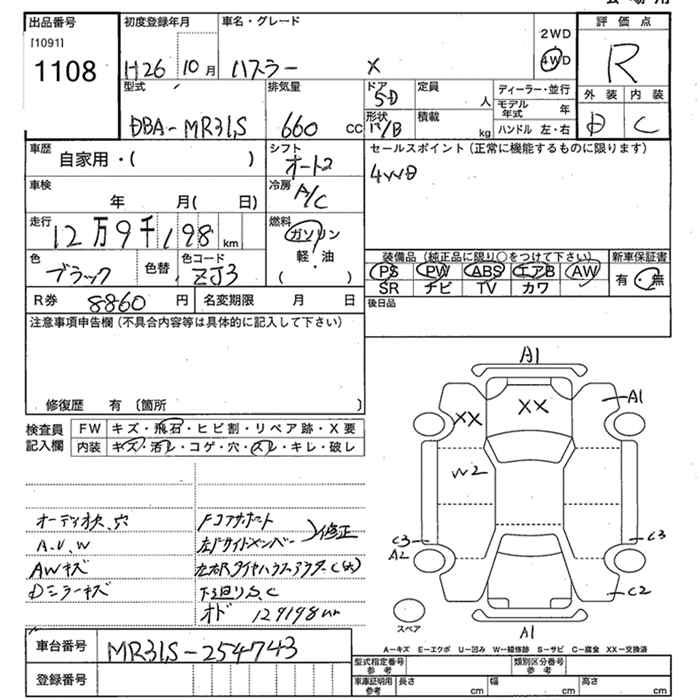 出品番号
[1091]
1108
初度登録年月
H26 10月
車名・グレード
ハスラー X
2WD
4WD
評価点
R
外装 内装
D C
型式
DBA-MR31S
排気量
660 cc
ドア
5D
形状
/B
定員
人
積載
kg
ディーラー・並行
モデル年式 年
ハンドル 左・右
車歴
自家用・( )
シフト
オート2
セールスポイント(正常に機能するものに限ります)
4WD
車検
年 月( 日)
冷房
A/C
走行
12万9千198 km
燃料
ガソリン
軽・油
( )
色
ブラック
色替
色コード
ZJ3
装備品(純正品に限り○をつけて下さい)
PS PW ABS エアB AW
SR ナビ TV カワ
新車保証書
有・無
R券 8860 円
名変期限 月 日
後日品
注意事項申告欄(不具合内容等は具体的に記入して下さい)
修復歴 有(箇所 )
検査員記入欄
FW キズ・飛石・ヒビ割・リペア跡・X要
内装 キズ・汚レ・コゲ・穴・スレ・キレ・破レ
オーディオ欠、穴
A.U.W
AWキズ
Dミラーキズ
Fコアサポート
左Fサイドメンバー
修正
下廻りS,C
オド 129198km
A1
A1
XX
XX
W2
C3
A2
C3
C2
A1
スペア
A-キズ E-エクボ U-凹み W-補修跡 S-サビ C-腐食 XX-交換済
車台番号 MR31S-254743
登録番号
型式指定番号 参考
類別区分番号 参考
車庫証明用 参考
長さ cm 幅 cm 高さ cm